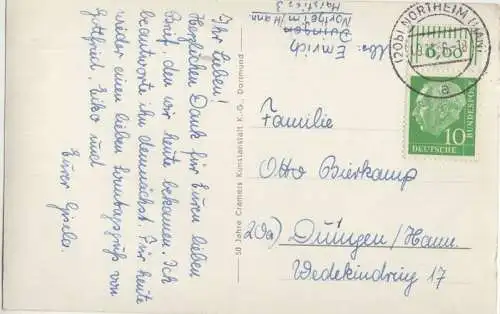 Ihr Lieben!
Herzlichen Dank für Euren lieben
Brief, den wir heute bekamen. Ich
beantworte ihn demnächst. Für heute
wieder einen lieben Sonntagsgruß von
Gottfried, Eiko und
Eurer Gisela.
50 Jahre Cramers Kunstanstalt K.-G., Dortmund
Abs. Emrich
Duingen
Northeim/Hann
(20b) NORTHEIM (HAN)
a
10
DEUTSCHE
BUNDESPOST
Familie
Otto Bierkamp
20a) Duingen/Hann.
Wedekindring 17